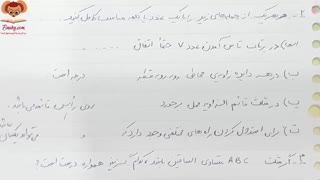 ۲- هر یک از جمله‌های زیر را با یک عدد یا کلمه مناسب کامل کنید.
الف) در پرتاب تاس آمدن عدد ۷ حتماً اتفاق .......
ب) در همه دایره زاویه‌ی محاطی روبه‌روی قطر درجه است
پ) در مثلث قائم الزاویه محل برخورد روی رأس قائمه می‌باشد.
ت) برای استدلال کردن راه‌های مختلفی وجود دارد که و می‌تواند
۳- اگر مثلث ABC متساوی الساقین باشد کدام گزینه همواره درست است؟